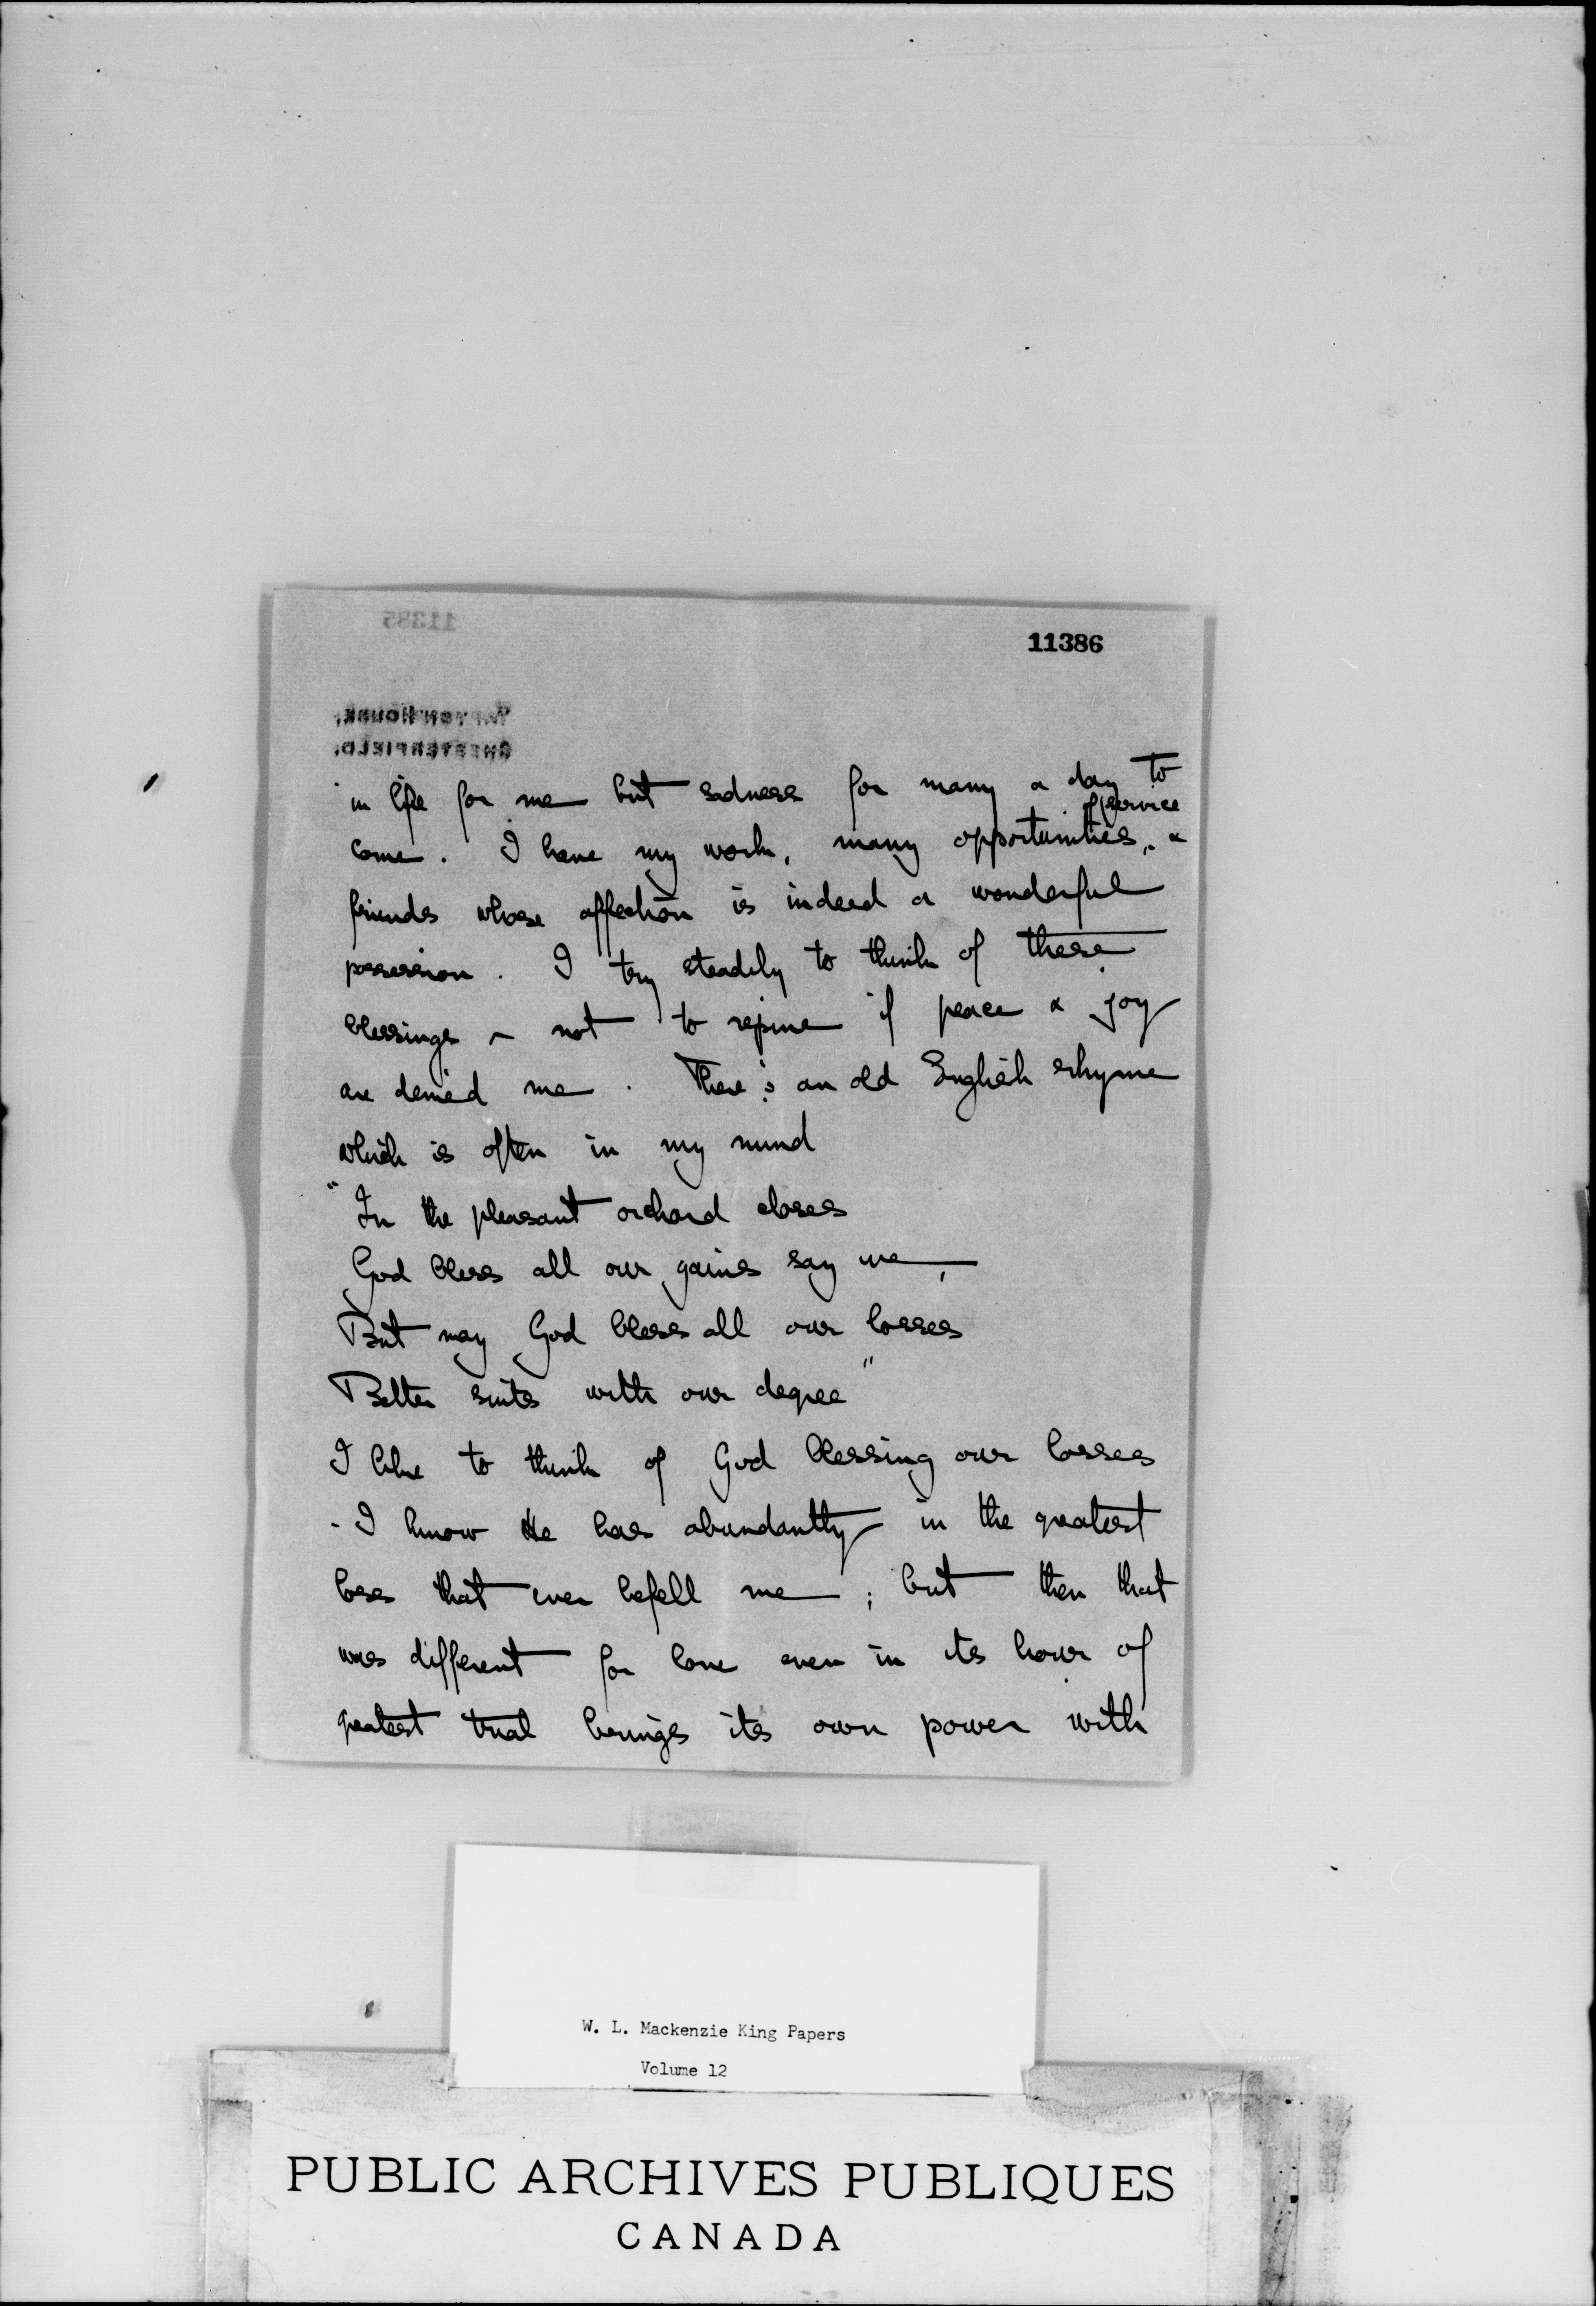 11385
11386
CHESTERFIELD.
in life for me but sadness for many a day to
come. I have my work, many opportunities of service, &
friends whose affection is indeed a wonderful
possession. I try steadily to think of these
blessings & not to repine if peace & joy
are denied me. There's an old English rhyme
which is often in my mind
"In the pleasant orchard closes
God bless all our gains say we,
But may God bless all our losses
Better suits with our degree"
I like to think of God blessing our losses
- I know He has abundantly in the greatest
loss that ever befell me; but then that
was different for love even in its hour of
greatest trial brings its own power with
W. L. Mackenzie King Papers
Volume 12
PUBLIC ARCHIVES PUBLIQUES
CANADA